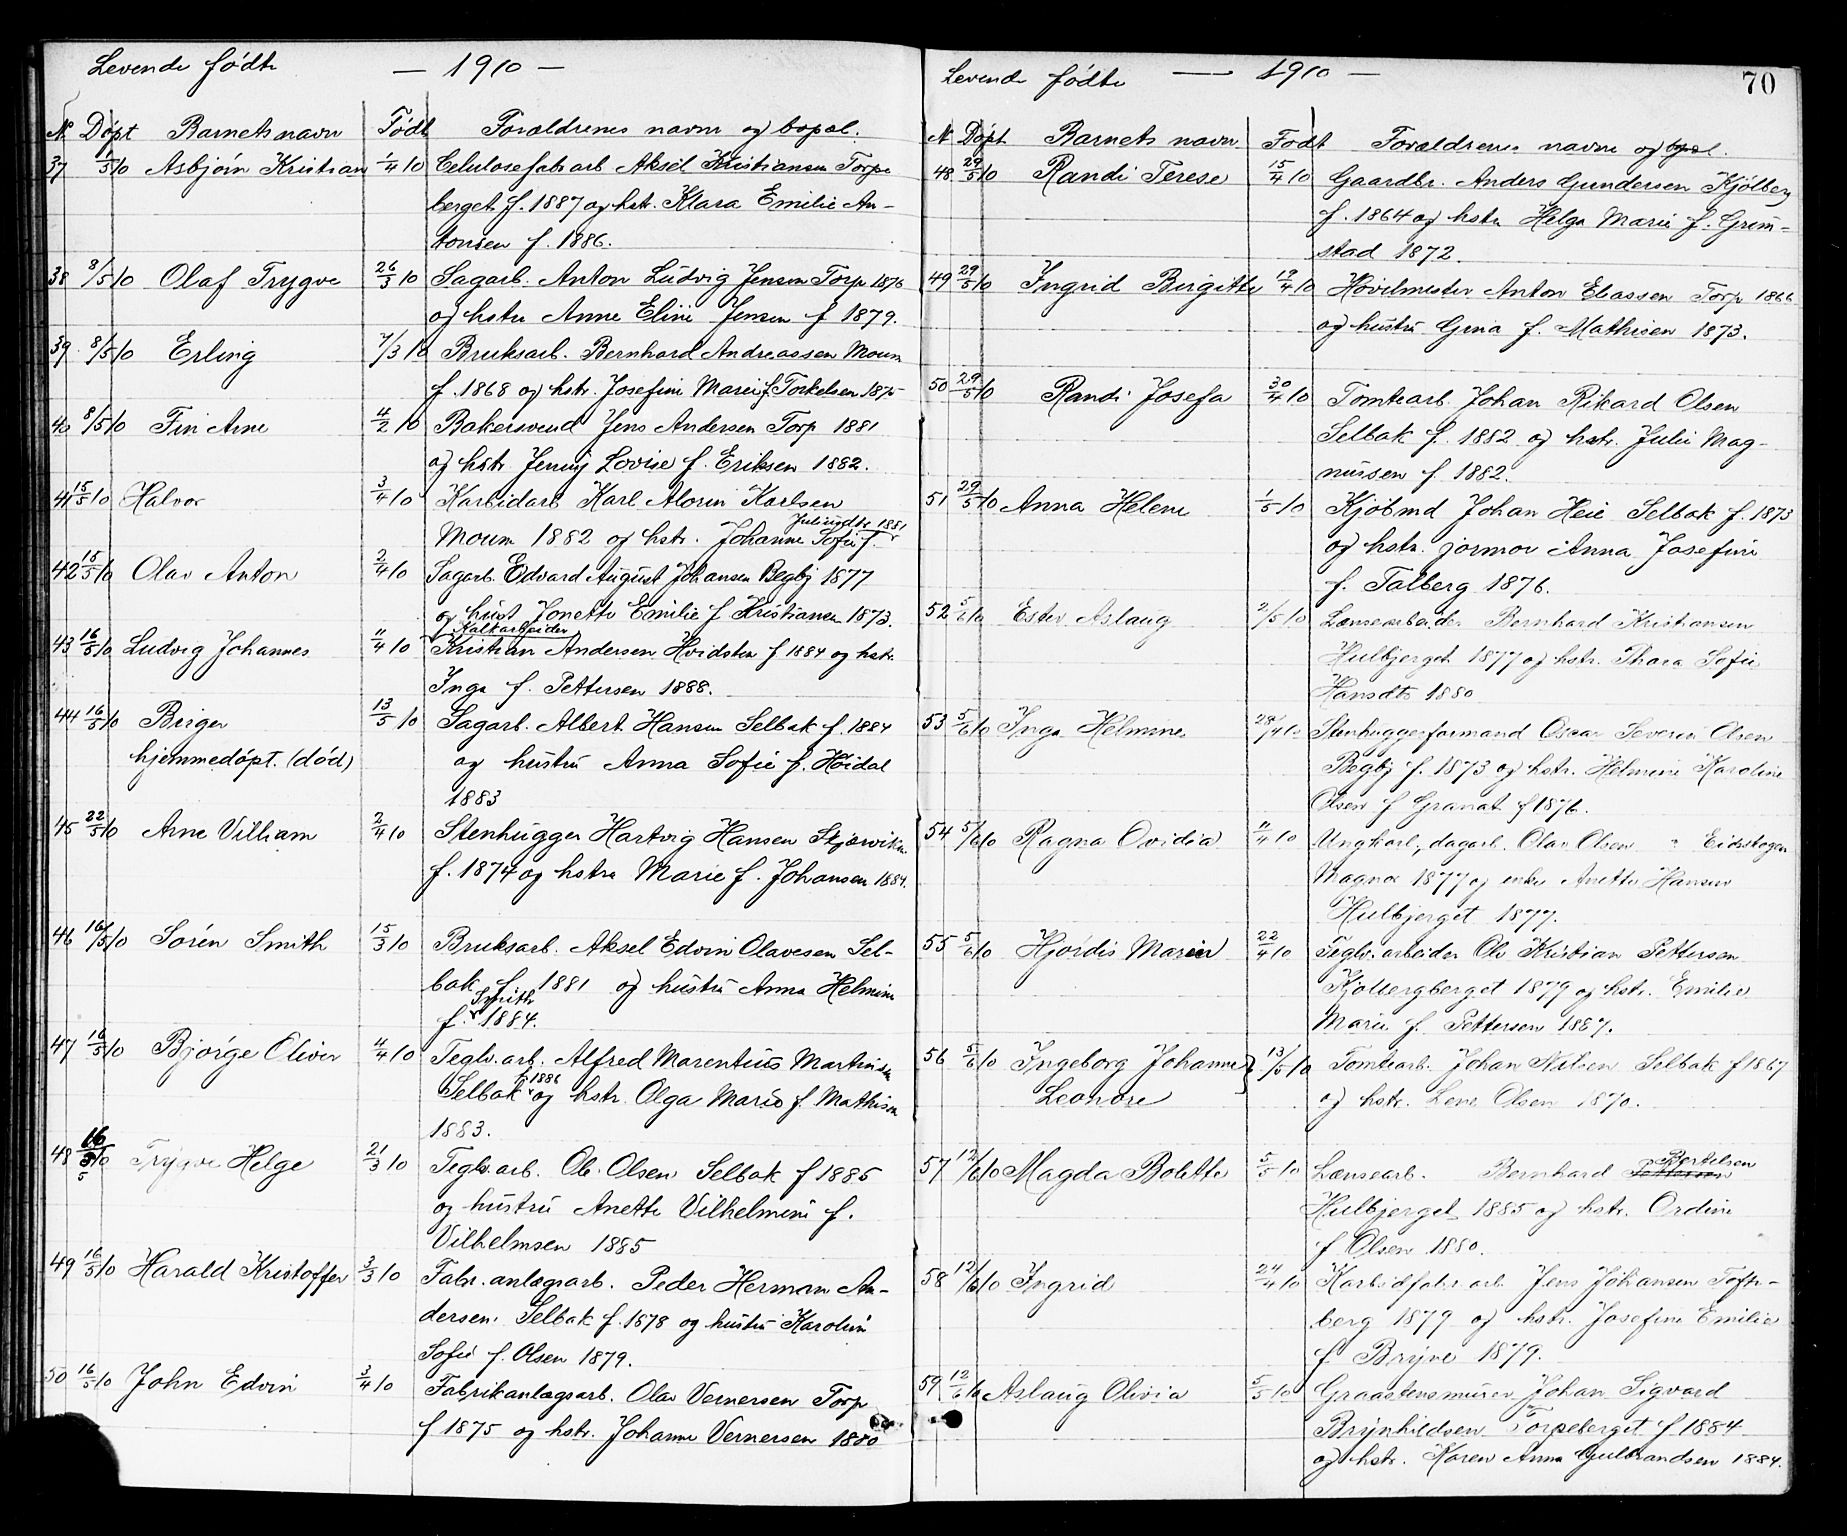 Levende fødte — 1910 —
N. Døpt Barnets navn Født Forældrenes navne og bopæl.
37 1/5 10 Asbjørn Kristian 1/4 10 Celulosefabr.arb Aksel Kristiansen Torpe
berget f. 1887 og hst. Klara Emilie An-
tonsen f. 1886.
38 8/5 10 Olaf Trygve 26/3 10 Sagarb. Anton Ludvig Jensen Torp 1876
og hstu Anne Eline Jensen f 1879.
39. 8/5 10 Erling 7/3 10 Bruksarb. Bernhard Andreassen Moum
f. 1868 og hstr. Josefine Marei f. Torkelsen 1875
40 8/5 10 Fin Arne 4/2 10 Bakersvend Jens Andersen Torp 1881
og hstr. Jenny Lovise f. Eriksen 1882.
41 15/5 10 Halvor 3/4 10 Karbidarb Karl Alorin Karlsen
Juliusdtr 1881
Moum 1882 og hstr. Johanne Sofie f.
42 15/5 10 Olav Anton 2/4 10 Sagarb. Edvard August Johansen Begby 1877
og hust Jonette Emilie f Kristiansen 1873.
Kalkarbeider
43 16/5 10 Ludvig Johannes 11/4 10 Kristian Andersen Hvidsten f 1884 og hstr.
Inga f. Pettersen 1888.
44 16/5 10 Birger 13/5 10 Sagarb. Albert Hansen Selbak f. 1884
hjemmedøpt. (død) og hustru Anna Sofie f. Høidal
1883
45 22/5 10 Arne Villiam 2/4 10 Stenhugger Hartvig Hansen Skjærviken
f. 1874 og hstru Marie f. Johansen 1884.
46 16/5 10 Søren Smith 15/3 10 Bruksarb. Aksel Edvin Olavesen Sel-
bak f. 1881 og hustru Anna Helmine
Smith
f. 1884.
47 16/5 10 Bjørge Oliver 11/4 10 Teglv.arb. Alfred Marentius Martinsen
f. 1886
Selbak og hstr. Olga Marie f. Mathisen
1883.
48 16/5 10 Trygve Helge 21/3 10 Teglv.arb. Ole Olsen Selbak f 1885
og hustru Anette Vilhelmine f.
Vilhelmsen 1885
49 16/5 10 Harald Kristoffer 3/3 10 Fabr.anlægsarb. Peder Herman An-
dersen. Selbak f. 1878 og hustru Karoline
Sofie f. Olsen 1879.
50 16/5 10 John Edvin 3/4 10 Fabrikanlægsarb. Olav Vernersen Torp
f 1875 og hstr. Johanne Vernersen 1880
Levende fødte — 1910 — 70
N Døpt Barnets navn Født Forældrenes navne og bopæl.
48. 29/5 10 Randi Terese 15/4 10 Gaardbr. Anders Gundersen Kjølberg
f. 1864 og hstru Helga Marie f. Grim-
stad 1872.
49 29/5 10 Ingrid Birgitte 19/4 10 Høvilmester Anton Eliassen Torp 1866
og hustru Gina f. Mathisen 1873.
50 29/5 10 Randi Josefa 30/4 10 Tomtearb. Johan Rikard Olsen
Selbak f. 1882 og hstr. Julie Mag-
nussen f. 1882.
51 29/5 10 Anna Helene 1/5 10 Kjøbmd Johan Heie Selbak f. 1873
og hstr. jormor Anna Josefine
f. Talberg 1876.
52 5/6 10 Ester Aslaug 2/5 10 Lænsearbeider Bernhard Kristiansen
Hulbjerget 1877 og hstr. Thora Sofie
Hansdtr 1880
53 5/6 10 Inga Helmine 28/4 10 Stenhuggerformand Oscar Severin Olsen
Begby f. 1873 og hstr. Helmine Karoline
Olsen f Granat f 1876.
54 5/6 10 Ragna Ovidia 11/4 10 Ungkarl, dagarb. Olav Olsen Eidsskogen
Magnor 1877 og enke Anette Hansen
Hulbjerget 1877.
55 5/6 10 Hjørdis Marie 22/4 10 Teglv.arbeider Ole Kristian Pettersen
Kjølbergberget 1879 og hstr. Emilie
Marie f. Pettersen 1887.
56 5/6 10 Ingeborg Johanne 13/5 10 Tomtearb. Johan Nilsen Selbak f 1867
Leonore og hstr. Lene Olsen 1870.
57 12/6 10 Magda Bolette 5/5 10 Lænsearb. Bernhard Bertilsen
Hulbjerget 1885 og hstr. Ordine
f. Olsen 1880.
58 12/6 10 Ingrid 24/4 10 Karbidfabr.arb Jens Johansen Tofte-
berg 1879 og hstr. Josefine Emilie
f Bryne 1879.
59 12/6 10 Aslaug Olivia 5/5 10 Graastensmurer Johan Sigvard
Brynhildsen Torpeberget f 1884
og hstr. Karen Anna Gulbrandsen 1884.